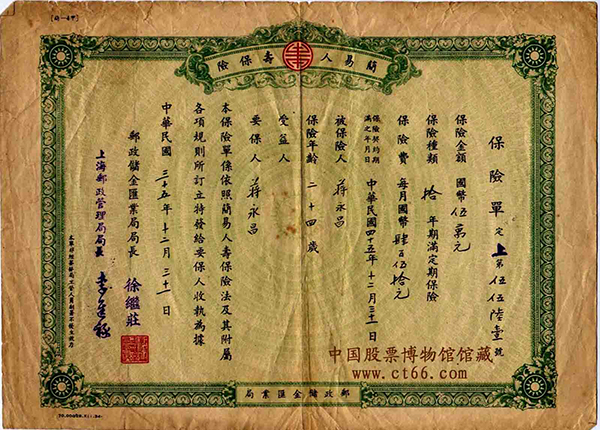 簡易人壽保險
保險單 定上第伍伍陸壹號
保險金額 國幣伍萬元
保險種類 拾年期滿定期保險
保險費 每月國幣肆百伍拾元
保險契約期滿之年月日 中華民國四十五年十二月三十一日
被保險人 蔣永昌
保險年齡 二十四歲
受益人
要保人 蔣永昌
本保險單係依照簡易人壽保險法及其附屬
各項規則所訂立特發給要保人收執為據
中華民國 三十五年十二月三十一日
郵政儲金匯業局局長 徐繼莊
上海郵政管理局局長 李進祿
郵政儲金匯業局
中国股票博物馆馆藏
www.ct66.com